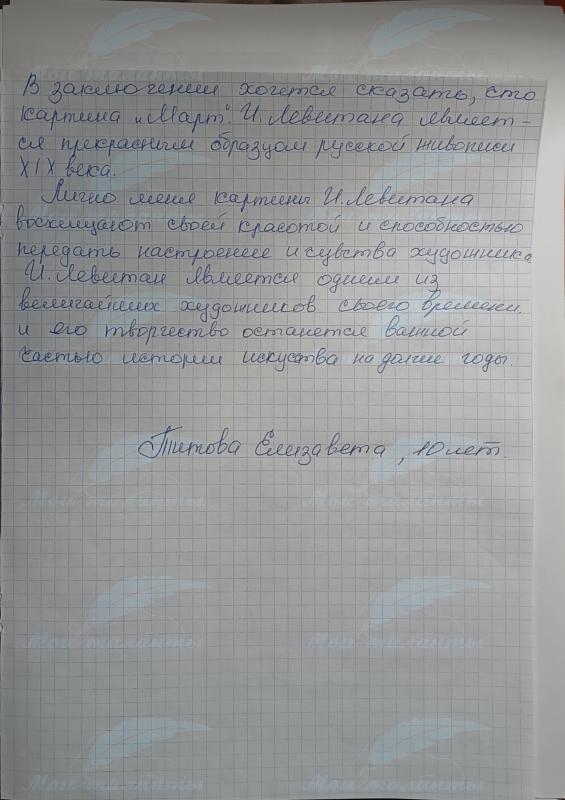 В заключении хочется сказать, что
картина „Март". И. Левитана являет-
ся прекрасным образцом русской живописи
XIX века.
Лично меня картины И. Левитана
восхищают своей красотой и способностью
передать настроение и чувства художника
И. Левитан является одним из
величайших художников своего времени.
и его творчество останется важной
частью истории искусства на долгие годы.
Титова Елизавета, 10 лет.
Мои таланты
Мои таланты
Мои таланты
Мои таланты
Мои таланты
Мои таланты